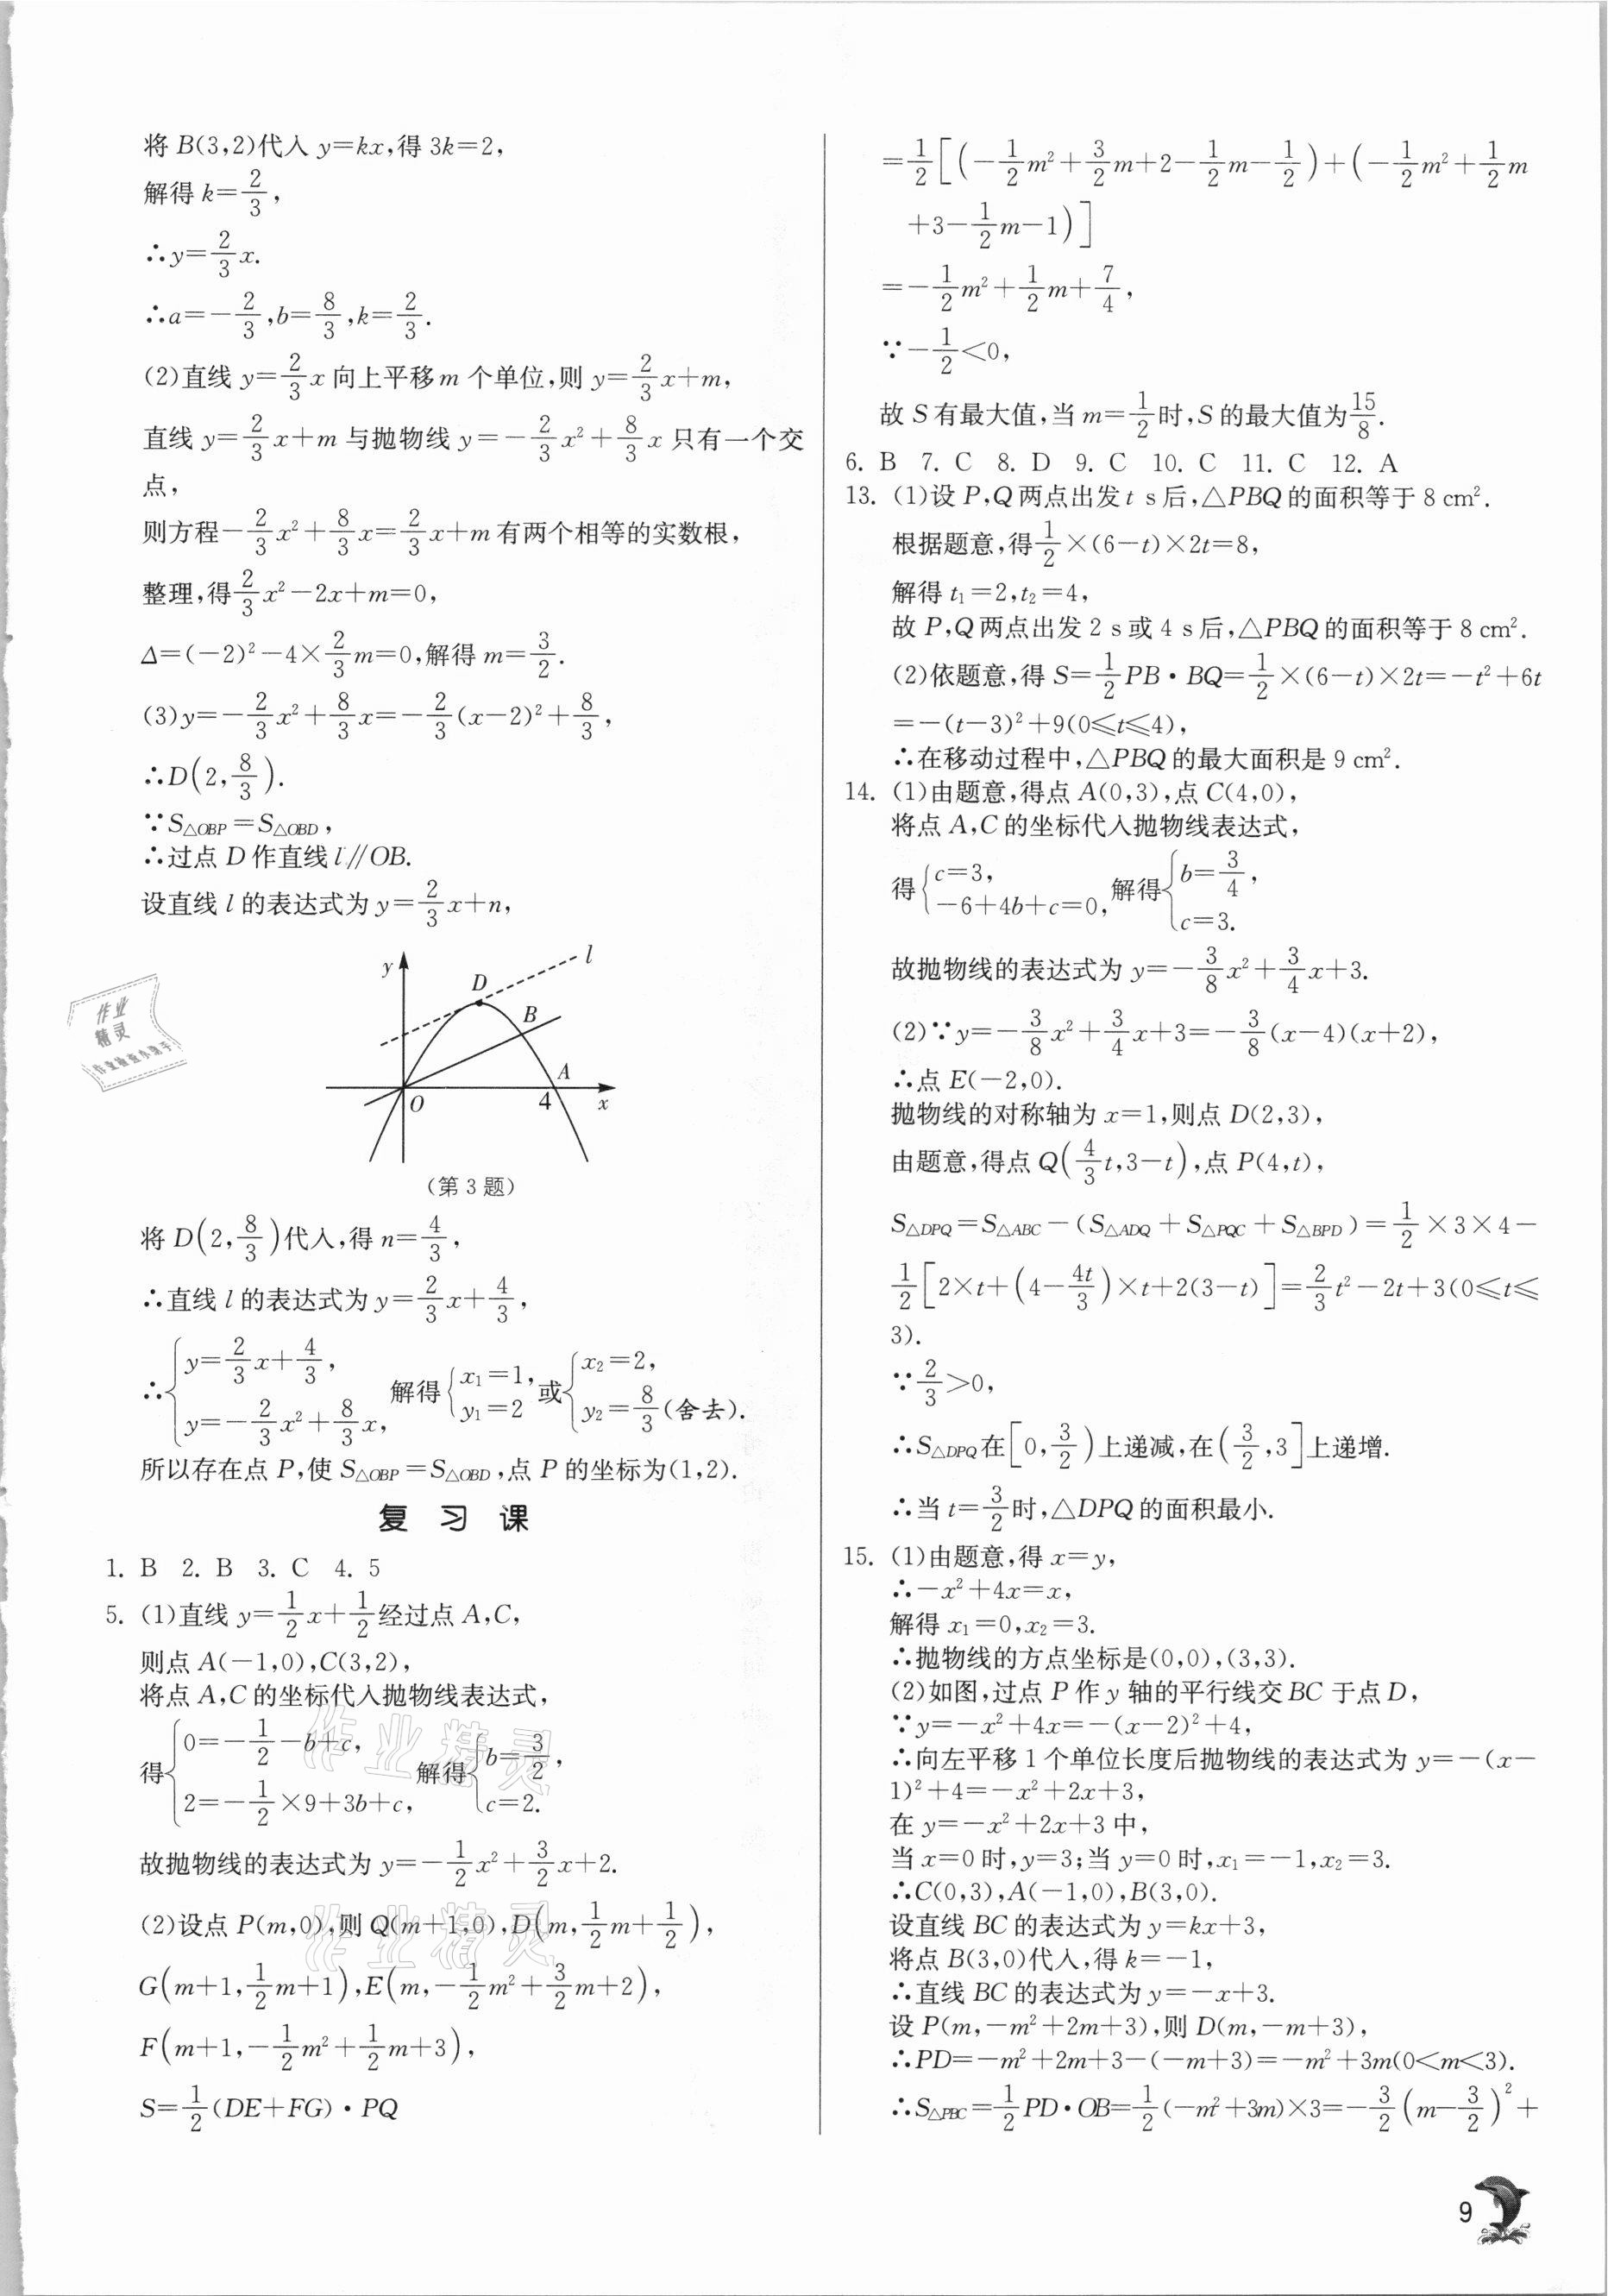 将 B(3,2)代入 y=kx,得 3k=2,
解得 k=2/3,
∴y=2/3x.
∴a=-2/3,b=8/3,k=2/3.
(2)直线 y=2/3x 向上平移 m 个单位,则 y=2/3x+m,
直线 y=2/3x+m 与抛物线 y=-2/3x²+8/3x 只有一个交
点,
则方程-2/3x²+8/3x=2/3x+m 有两个相等的实数根,
整理,得2/3x²-2x+m=0,
Δ=(-2)²-4×2/3m=0,解得 m=3/2.
(3)y=-2/3x²+8/3x=-2/3(x-2)²+8/3,
∴D(2,8/3).
∵S△OBP=S△OBD,
∴过点 D 作直线 l∥OB.
设直线 l 的表达式为 y=2/3x+n,
y
l
D
B
A
O
4
x
(第 3 题)
将 D(2,8/3)代入,得 n=4/3,
∴直线 l 的表达式为 y=2/3x+4/3,
∴{y=2/3x+4/3, y=-2/3x²+8/3x, 解得{x₁=1, y₁=2 或{x₂=2, y₂=8/3(舍去).
所以存在点 P,使 S△OBP=S△OBD,点 P 的坐标为(1,2).
复 习 课
1. B 2. B 3. C 4. 5
5. (1)直线 y=1/2x+1/2经过点 A,C,
则点 A(-1,0),C(3,2),
将点 A,C 的坐标代入抛物线表达式,
得{0=-1/2-b+c, 2=-1/2×9+3b+c, 解得{b=3/2, c=2.
故抛物线的表达式为 y=-1/2x²+3/2x+2.
(2)设点 P(m,0),则 Q(m+1,0),D(m,1/2m+1/2),
G(m+1,1/2m+1),E(m,-1/2m²+3/2m+2),
F(m+1,-1/2m²+1/2m+3),
S=1/2(DE+FG)·PQ
=1/2[(-1/2m²+3/2m+2-1/2m-1/2)+(-1/2m²+1/2m
+3-1/2m-1)]
=-1/2m²+1/2m+7/4,
∵-1/2<0,
故 S 有最大值,当 m=1/2时,S 的最大值为15/8.
6. B 7. C 8. D 9. C 10. C 11. C 12. A
13. (1)设 P,Q 两点出发 t s 后,△PBQ 的面积等于 8 cm².
根据题意,得1/2×(6-t)×2t=8,
解得 t₁=2,t₂=4,
故 P,Q 两点出发 2 s 或 4 s 后,△PBQ 的面积等于 8 cm².
(2)依题意,得 S=1/2PB·BQ=1/2×(6-t)×2t=-t²+6t
=-(t-3)²+9(0≤t≤4),
∴在移动过程中,△PBQ 的最大面积是 9 cm².
14. (1)由题意,得点 A(0,3),点 C(4,0),
将点 A,C 的坐标代入抛物线表达式,
得{c=3, -6+4b+c=0, 解得{b=3/4, c=3.
故抛物线的表达式为 y=-3/8x²+3/4x+3.
(2)∵y=-3/8x²+3/4x+3=-3/8(x-4)(x+2),
∴点 E(-2,0).
抛物线的对称轴为 x=1,则点 D(2,3),
由题意,得点 Q(4/3t,3-t),点 P(4,t),
S△DPQ=S△ABC-(S△ADQ+S△PQC+S△BPD)=1/2×3×4-
1/2[2×t+(4-4t/3)×t+2(3-t)]=2/3t²-2t+3(0≤t≤
3).
∵2/3>0,
∴S△DPQ在[0,3/2)上递减,在(3/2,3]上递增.
∴当 t=3/2时,△DPQ 的面积最小.
15. (1)由题意,得 x=y,
∴-x²+4x=x,
解得 x₁=0,x₂=3.
∴抛物线的方点坐标是(0,0),(3,3).
(2)如图,过点 P 作 y 轴的平行线交 BC 于点 D,
∵y=-x²+4x=-(x-2)²+4,
∴向左平移 1 个单位长度后抛物线的表达式为 y=-(x-
1)²+4=-x²+2x+3,
在 y=-x²+2x+3 中,
当 x=0 时,y=3;当 y=0 时,x₁=-1,x₂=3.
∴C(0,3),A(-1,0),B(3,0).
设直线 BC 的表达式为 y=kx+3,
将点 B(3,0)代入,得 k=-1,
∴直线 BC 的表达式为 y=-x+3.
设 P(m,-m²+2m+3),则 D(m,-m+3),
∴PD=-m²+2m+3-(-m+3)=-m²+3m(0<m<3).
∴S△PBC=1/2PD·OB=1/2(-m²+3m)×3=-3/2(m-3/2)²+
9
作业
精灵
作业精灵
作业精灵